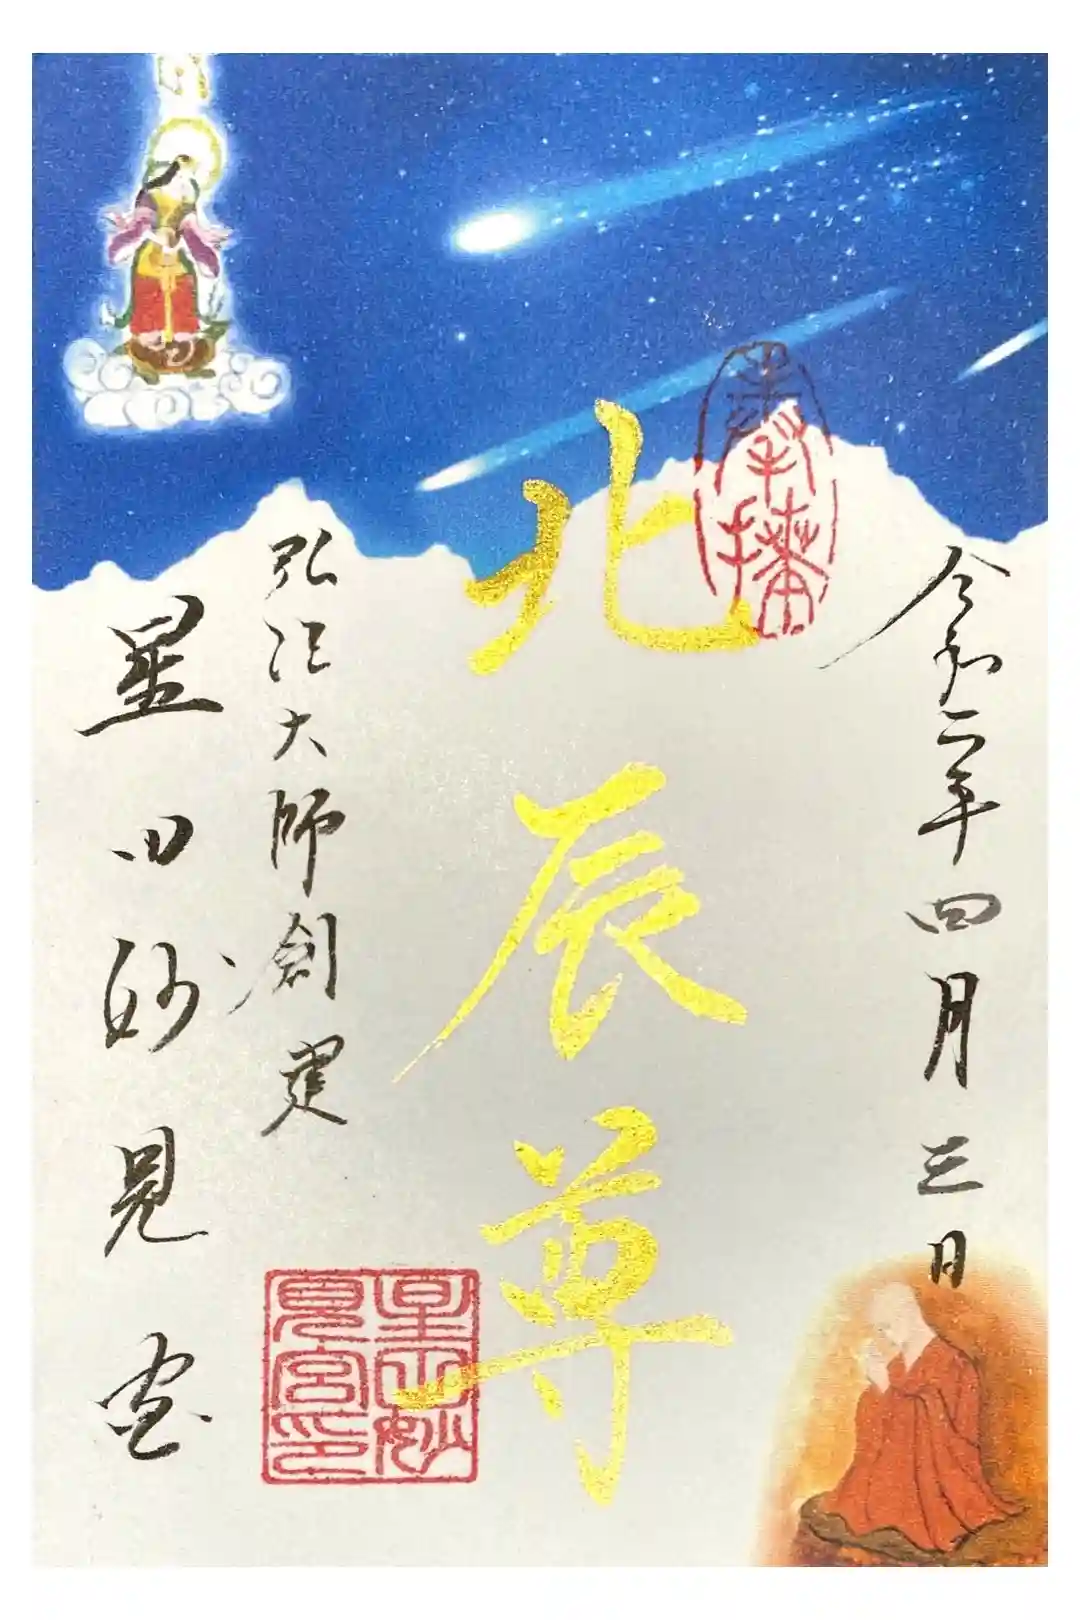 奉拝
令和二年四月三日
北辰尊
弘法大師創建
星田妙見宮
星田妙見宮印